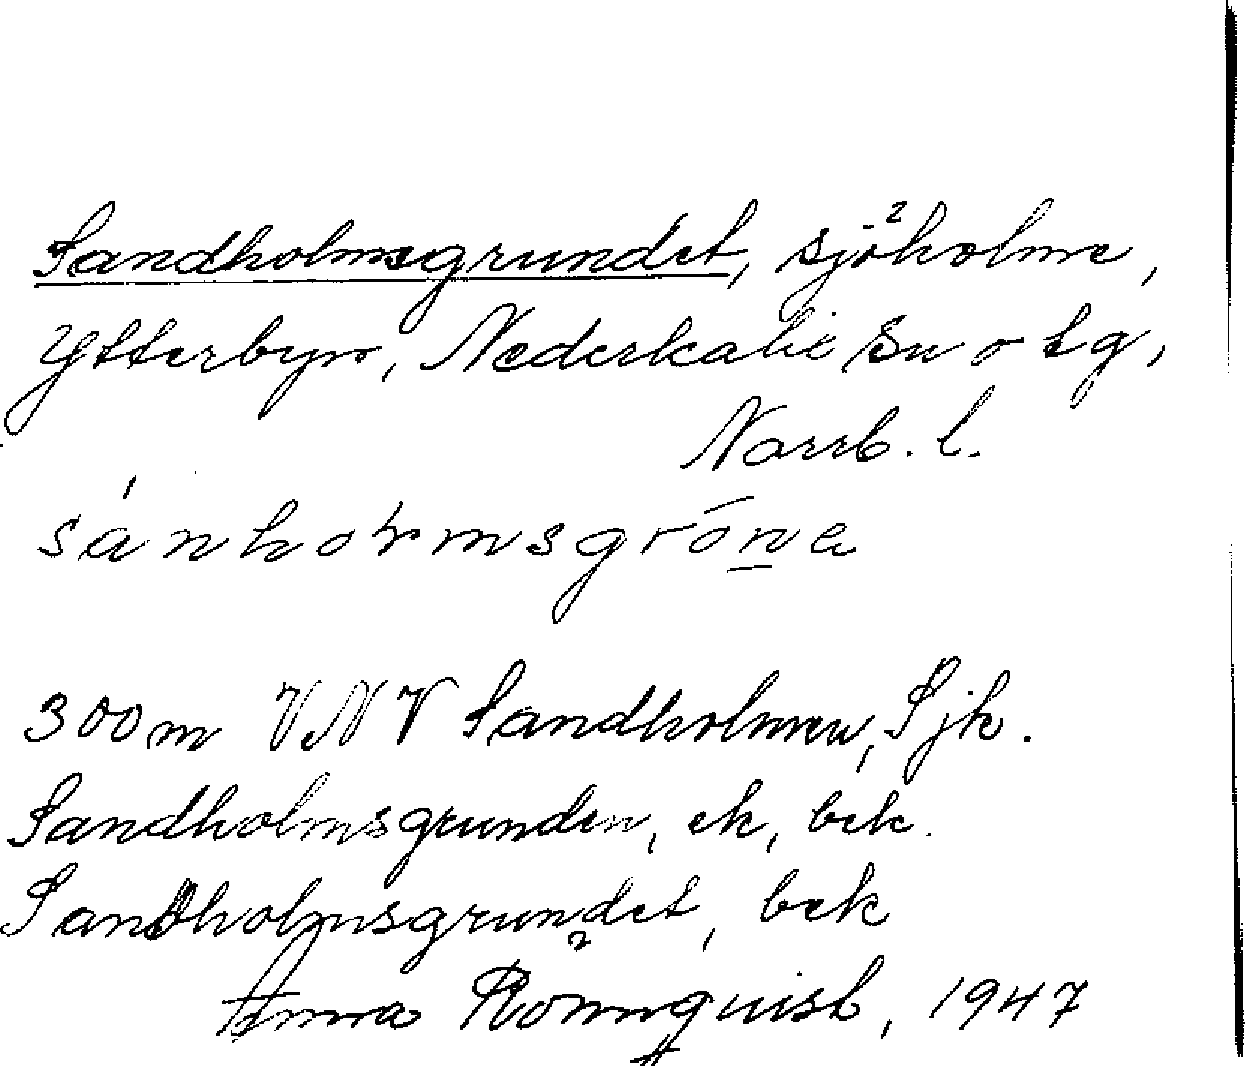 Sandholmsgrundet, sjöholme,
Ytterbyn, Nederkalix sn o tg,
Norrb. l.
300 m VNV Sandholmen, Sjk.
Sandholmsgrunden, ek, bek.
Sandholmsgrundet, bek
Anna Rönnquist, 1947